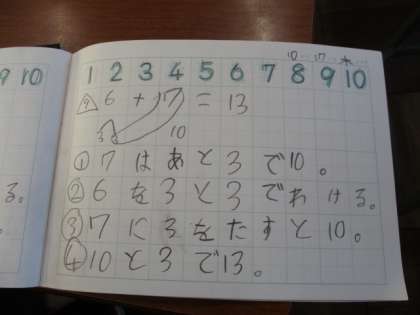 10 17 木
9 10
1 2 3 4 5 6 7 8 9 10
9 6 + 7 = 13
3 3 10
①7はあと3で10。
②6を3と3でわける。
る。
③7に3をたすと10。
④10と3で13。
る。